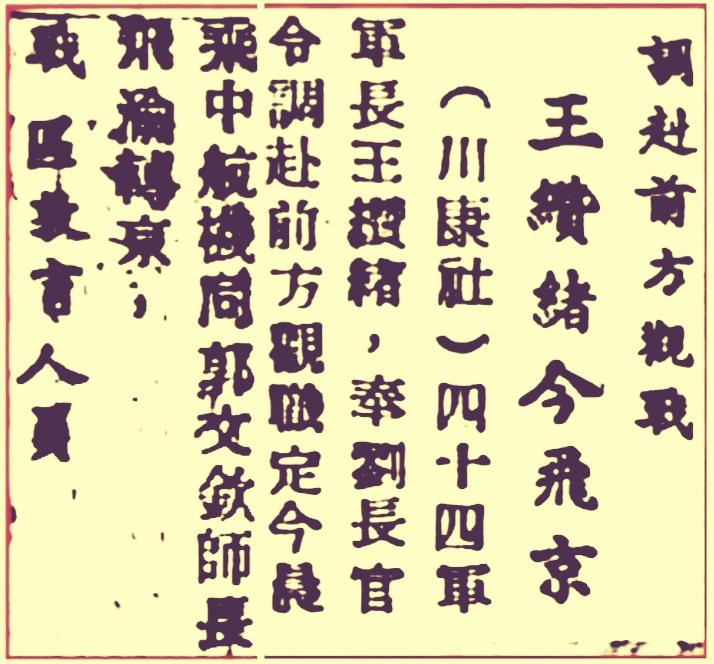 調赴前方觀戰
王纘緒今飛京
（川康社）四十四軍
軍長王纘緒，奉劉長官
令調赴前方觀戰定今晨
乘中航機同郭文欽師長
飛渝轉京；
戰區教育人員